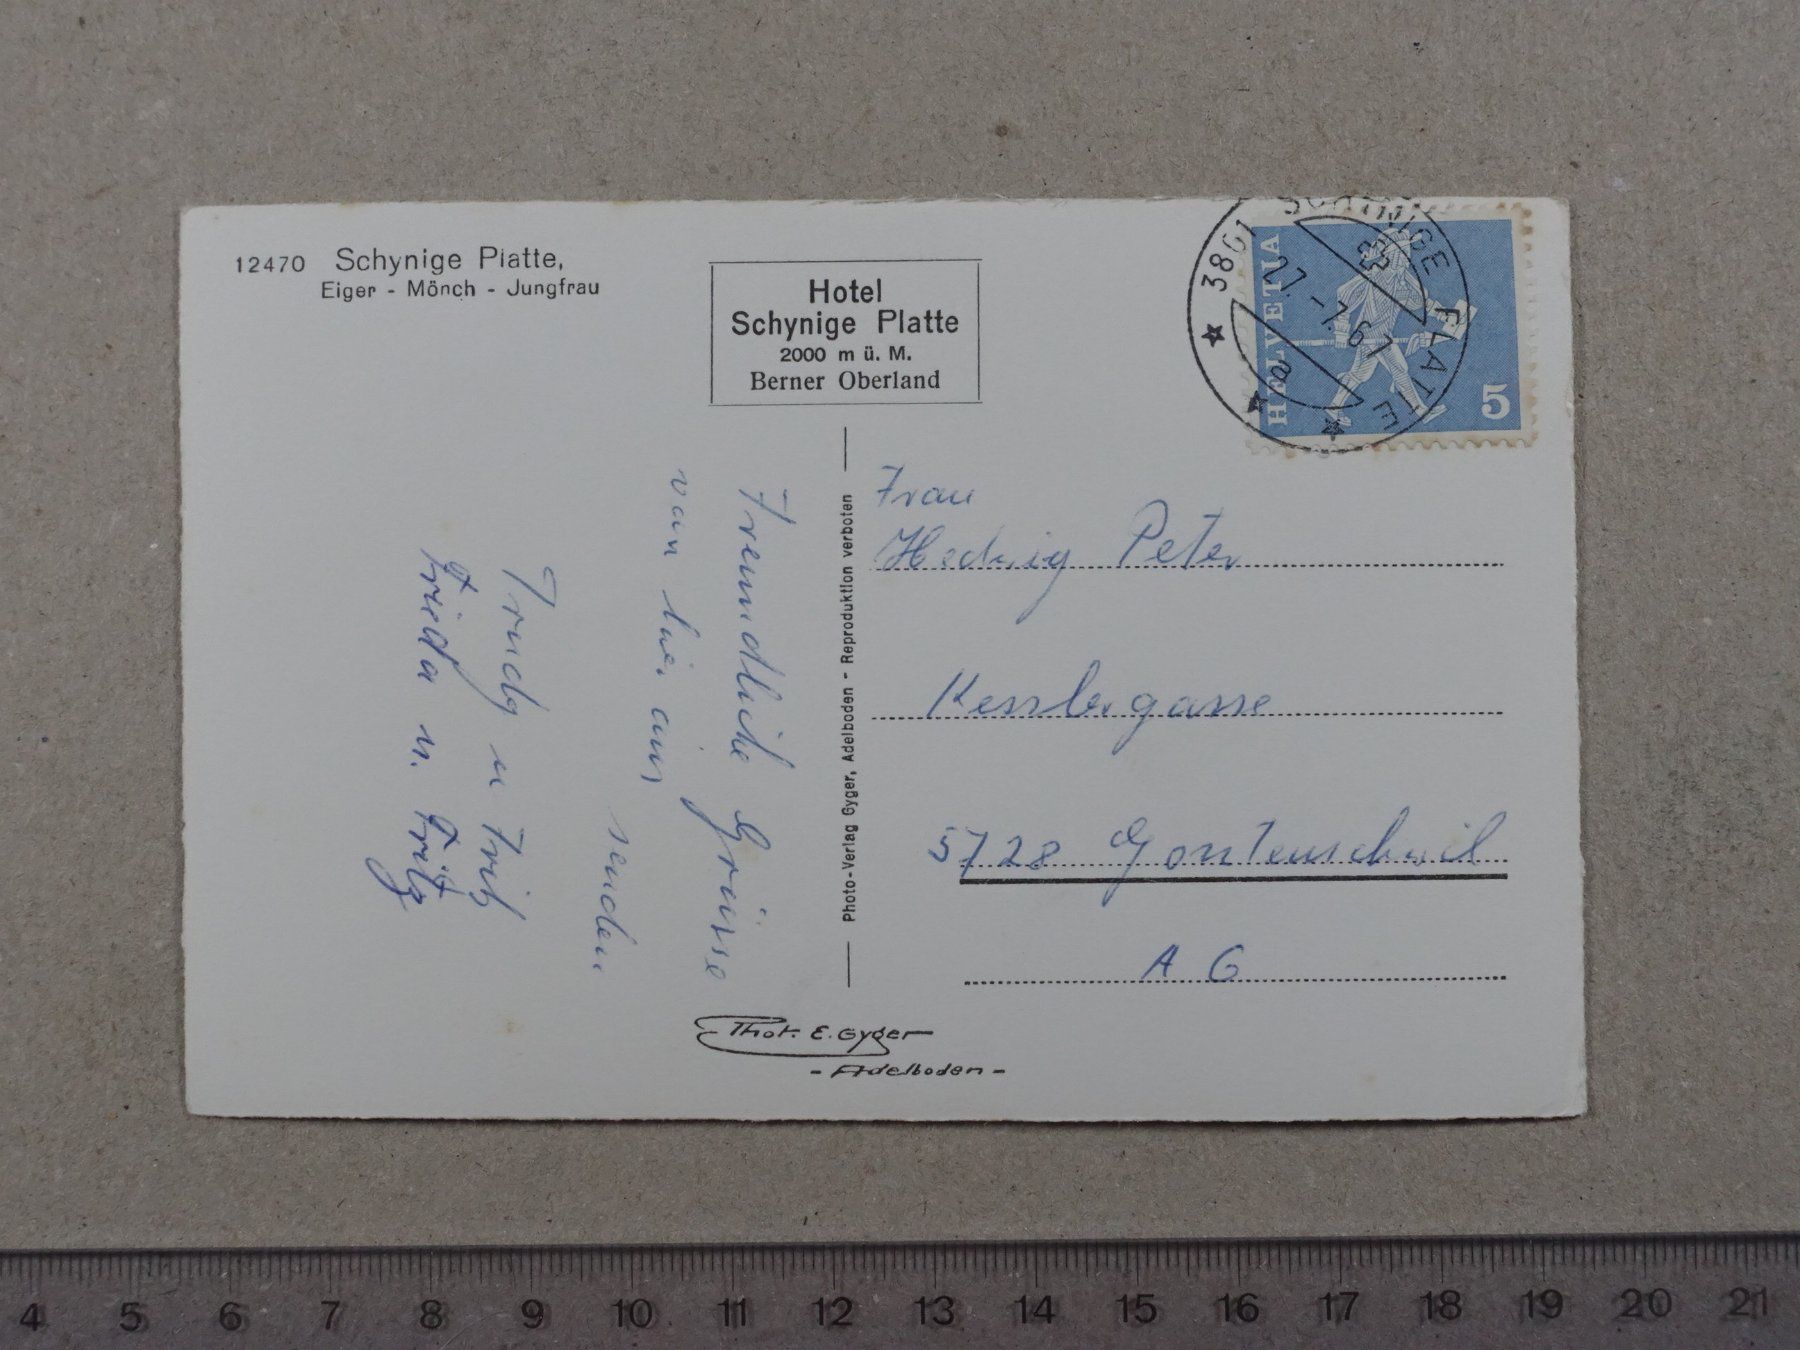 12470 Schynige Platte,
Eiger - Mönch - Jungfrau
Hotel
Schynige Platte
2000 m ü. M.
Berner Oberland
3801 SCHYNIGE PLATTE
27.-7.67
a
HELVETIA
5
Freundliche Grüsse
von hier aus
senden
Trudy u Fritz
Frieda u. Fritz
Photo-Verlag Gyger, Adelboden - Reproduktion verboten
Frau
Hedwig Peter
Kesslergasse
5728 Gontenschwil
AG
Phot. E. Gyger
- Adelboden -
4 5 6 7 8 9 10 11 12 13 14 15 16 17 18 19 20 21